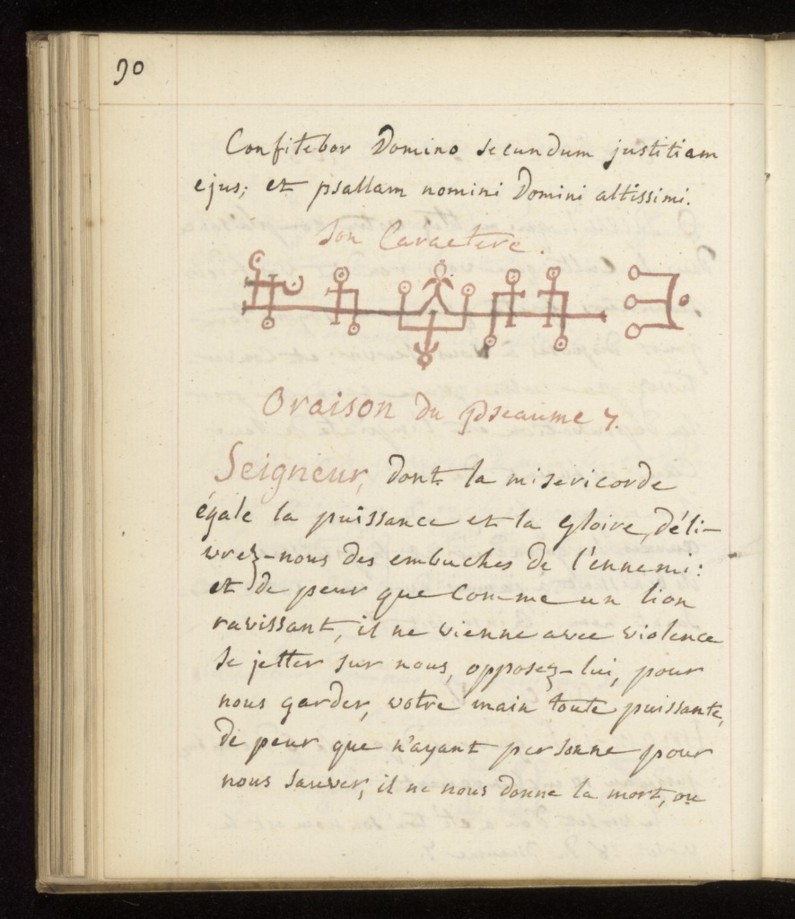 90
Confitebor Domino secundum justitiam
ejus; et psallam nomini Domini altissimi.
Son Caractere.
Oraison du Pseaume 7.
Seigneur, dont la misericorde
égale la puissance et la gloire, déli-
vrez-nous des embuches de l'ennemi:
et de peur que comme un lion
ravissant, il ne vienne avec violence
se jetter sur nous, opposez-lui, pour
nous garder, votre main toute puissante,
de peur que n'ayant personne pour
nous sauver, il ne nous donne la mort, ou